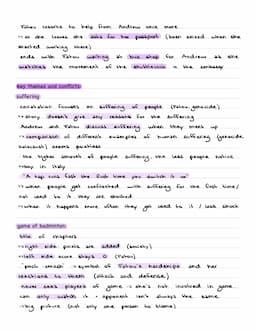 Fatou resorts to help from Andrew once more
→ as she leaves she asks for her passport (been seized when she
started working there)
ends with Fatou waiting at bus stop for Andrew as she
watches the movement of the shuttlecock in the embassy
key themes and conflicts:
suffering
→ story doesn't give any reasons for the suffering
Andrew and Fatou discuss suffering when they meet up
→ comparison of different examples of human suffering (genocide,
holocaust) seems pointless
the higher amount of people suffering, the less people notice
→ boy in Italy
"A tap runs fast the first time you switch it on"
→ when people get confronted with suffering for the first time /
not used to it they are shocked
→ when it happens more often they get used to it / less shock
game of badminton:
title of chapters
→ right side points are added (society)
→ left side score stays 0 (Fatou)
"pock smash" → symbol of Fatou's hardships and her
reactions to them (attack and defense)
→ never sees players of game → she's not involved in game
can only watch it + opponent isn't always the same
→ big picture (not only one person to blame)